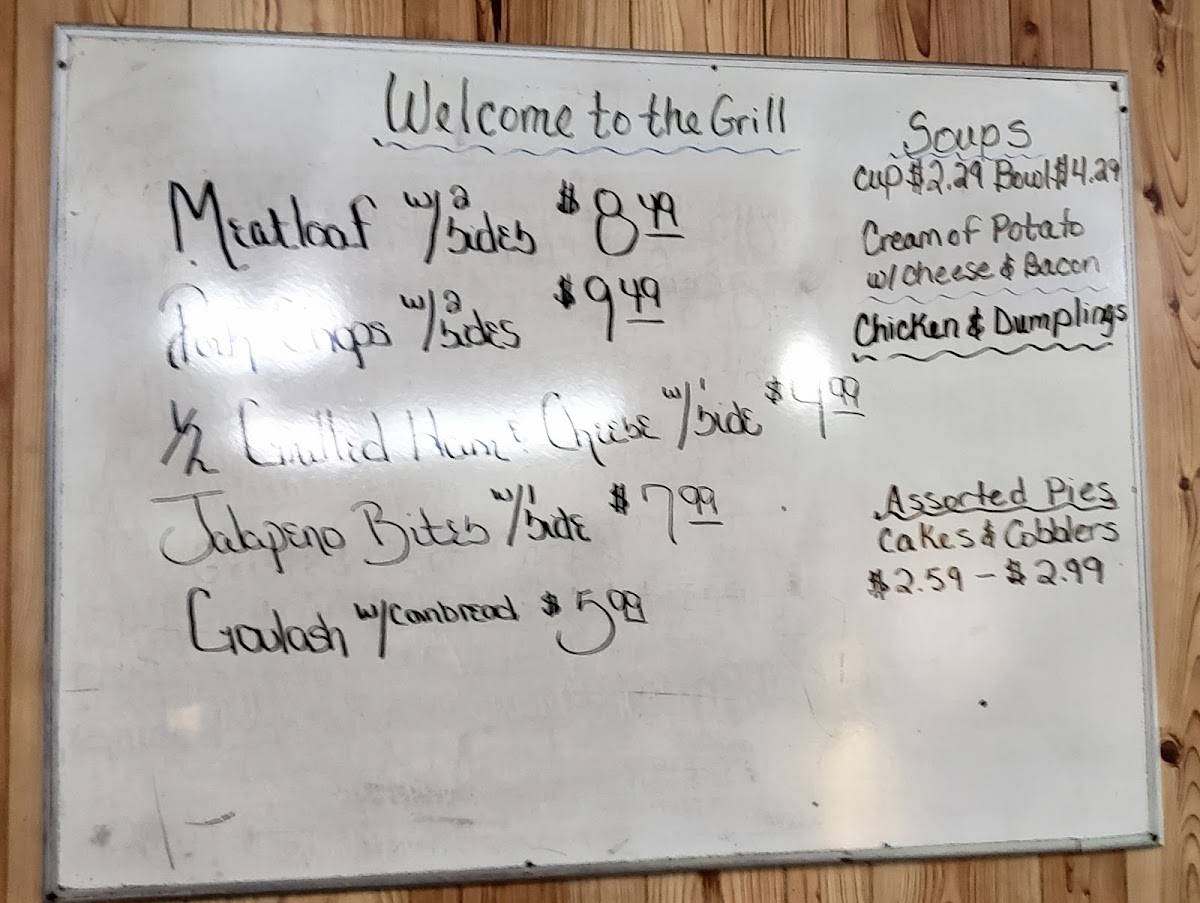 Welcome to the Grill
Meatloaf w/2 sides $8.49
Pork Chops w/2 sides $9.49
1/2 Grilled Ham & Cheese w/1 side $4.99
Jalapeno Bites w/1 side $7.99
Goulash w/cornbread $5.99
Soups
Cup $2.29 Bowl $4.29
Cream of Potato
w/ cheese & Bacon
Chicken & Dumplings
Assorted Pies
Cakes & Cobblers
$2.59 - $2.99